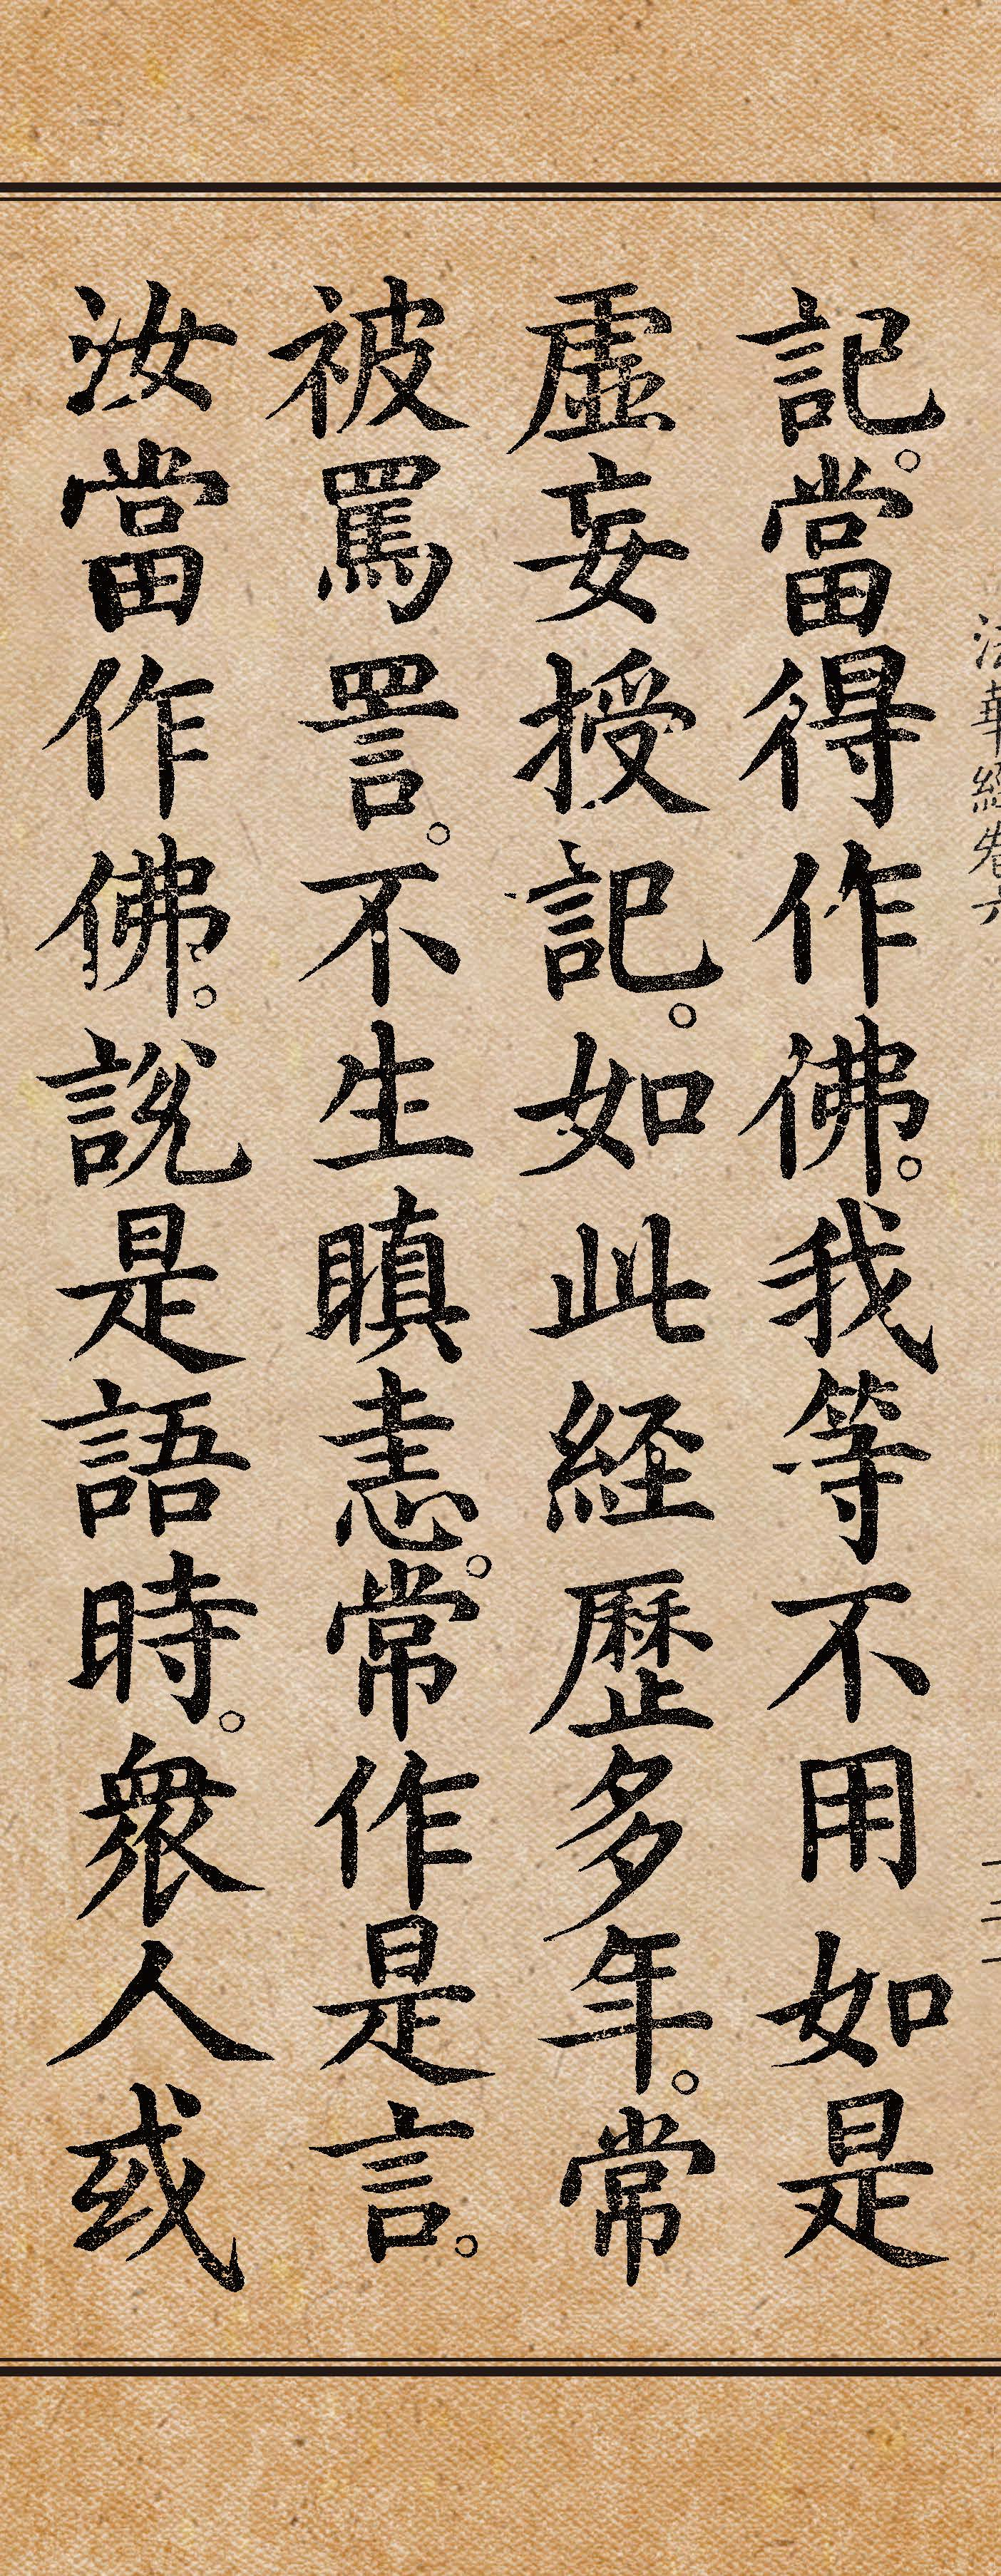 法華經卷六
記。當得作佛。我等不用如是
虛妄授記。如此経歷多年。常
被罵詈。不生瞋恚。常作是言。
汝當作佛。說是語時。衆人或